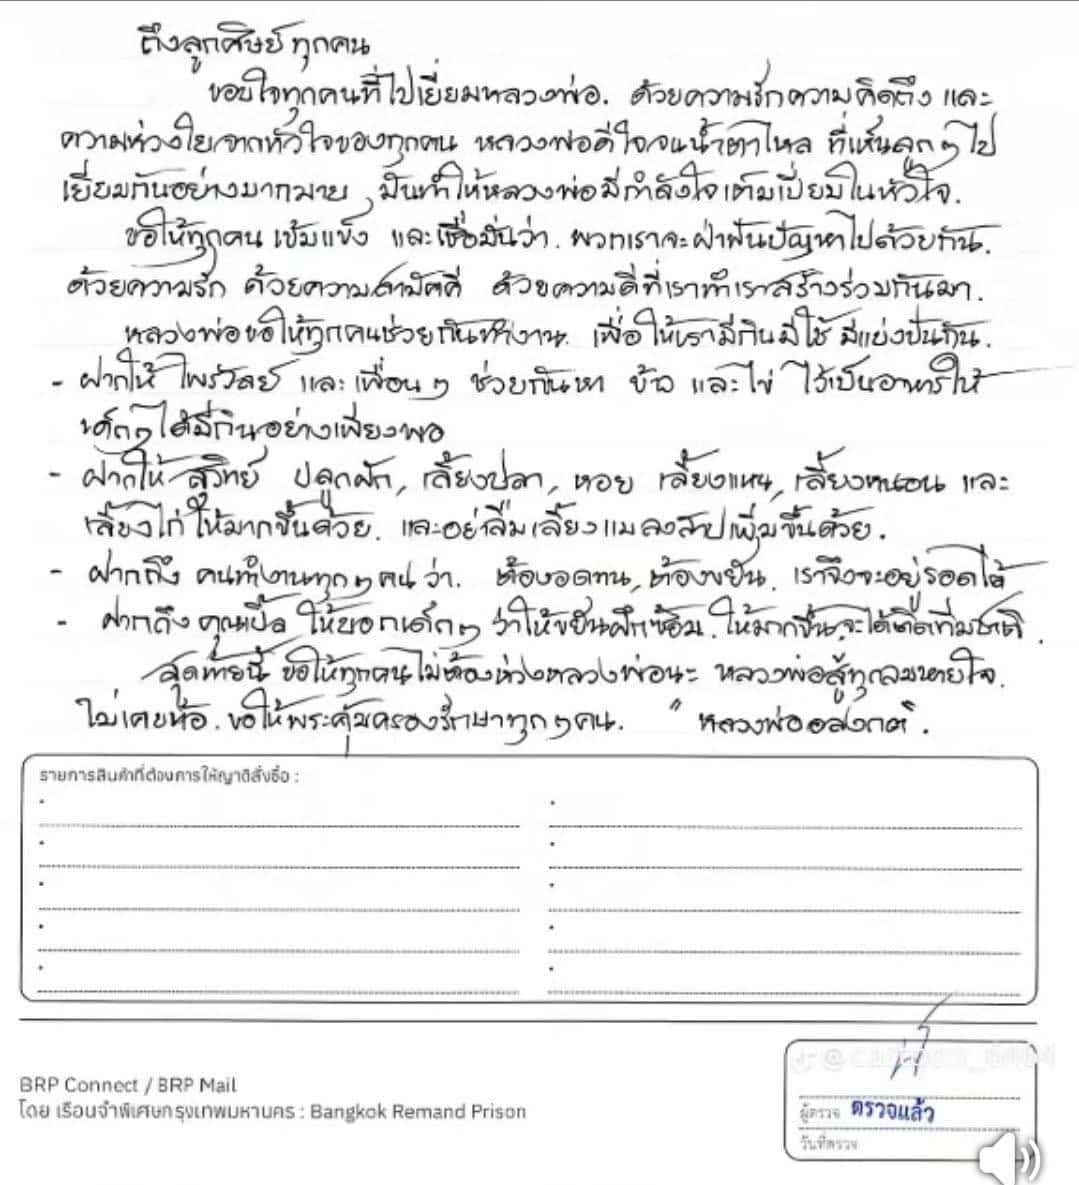 ถึงลูกศิษย์ทุกคน
ขอบใจทุกคนที่ไปเยี่ยมหลวงพ่อ. ด้วยความรักความคิดถึง และ
ความห่วงใยจากหัวใจของทุกคน หลวงพ่อดีใจจนน้ำตาไหล ที่เห็นลูกๆ ไป
เยี่ยมกันอย่างมากมาย, มันทำให้หลวงพ่อมีกำลังใจเต็มเปี่ยมในหัวใจ.
ขอให้ทุกคน เข้มแข็ง และเชื่อมั่นว่า. พวกเราจะฝ่าฟันปัญหาไปด้วยกัน.
ด้วยความรัก ด้วยความสามัคคี ด้วยความดีที่เราทำเราสร้างร่วมกันมา.
หลวงพ่อขอให้ทุกคนช่วยกันทำงาน. เพื่อให้เรามีกินมีใช้ มีแบ่งปันกัน.
- ฝากให้ ไพรวัลย์ และ เพื่อนๆ ช่วยกันหา ข้าว และไข่ ไว้เป็นอาหารให้
เด็กๆ ได้มีกินอย่างเพียงพอ
- ฝากให้ สุวิทย์ ปลูกผัก, เลี้ยงปลา, หอย เลี้ยงแหน, เลี้ยงหนอน และ
เลี้ยงไก่ ให้มากขึ้นด้วย. และอย่าลืมเลี้ยงแมลงสาปเพิ่มขึ้นด้วย.
- ฝากถึง คนทำงานทุกๆ คน ว่า. ต้องอดทน, ต้องขยัน. เราจึงจะอยู่รอดได้
- ฝากถึง คุณเปิ้ล ให้บอกเด็กๆ ว่าให้ขยันฝึกซ้อม. ให้มากขึ้น จะได้ติดทีมชาติ.
สุดท้ายนี้ ขอให้ทุกคนไม่ต้องห่วงหลวงพ่อนะ หลวงพ่อสู้ทุกลมหายใจ.
ไม่เคยท้อ. ขอให้พระคุ้มครองรักษาทุกๆ คน. " หลวงพ่ออลงกต".
รายการสินค้าที่ต้องการให้ญาติสั่งซื้อ :
BRP Connect / BRP Mail
โดย เรือนจำพิเศษกรุงเทพมหานคร : Bangkok Remand Prison
ผู้ตรวจ ตรวจแล้ว
วันที่ตรวจ